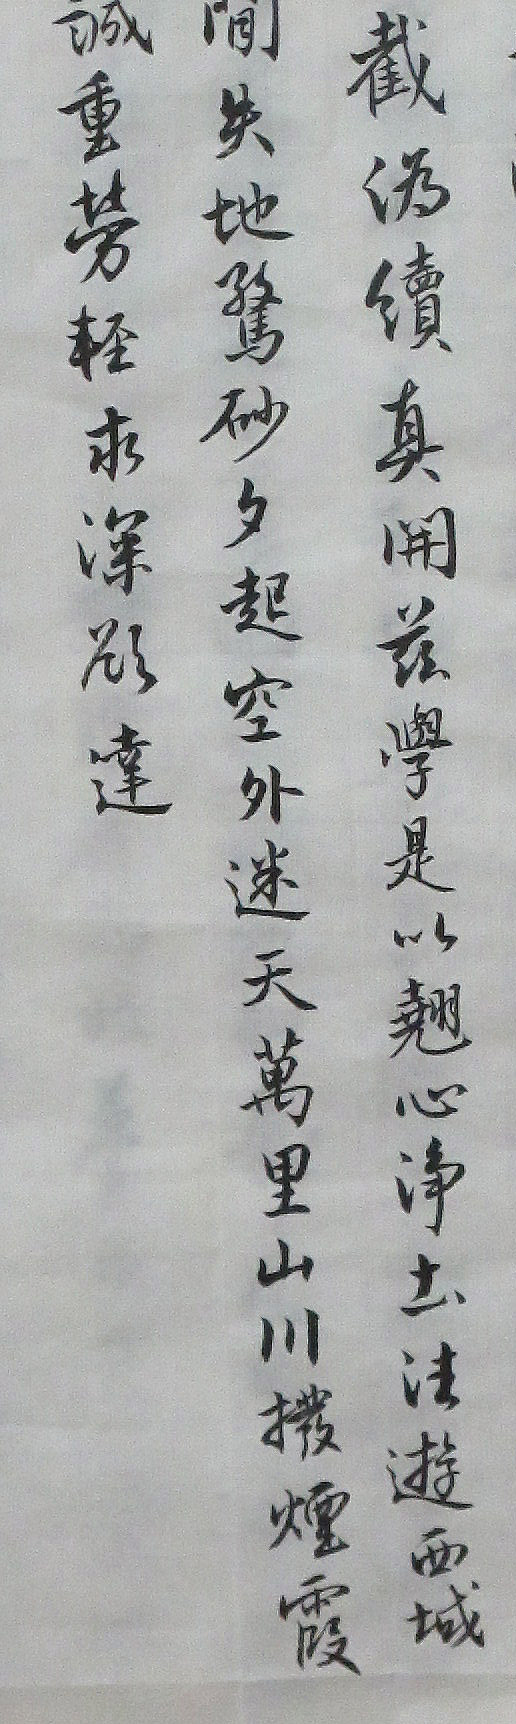 截偽續真開茲學是以翹心淨土往遊西域
間失地驚砂夕起空外迷天萬里山川撥煙霞
誠重勞輕求深願達